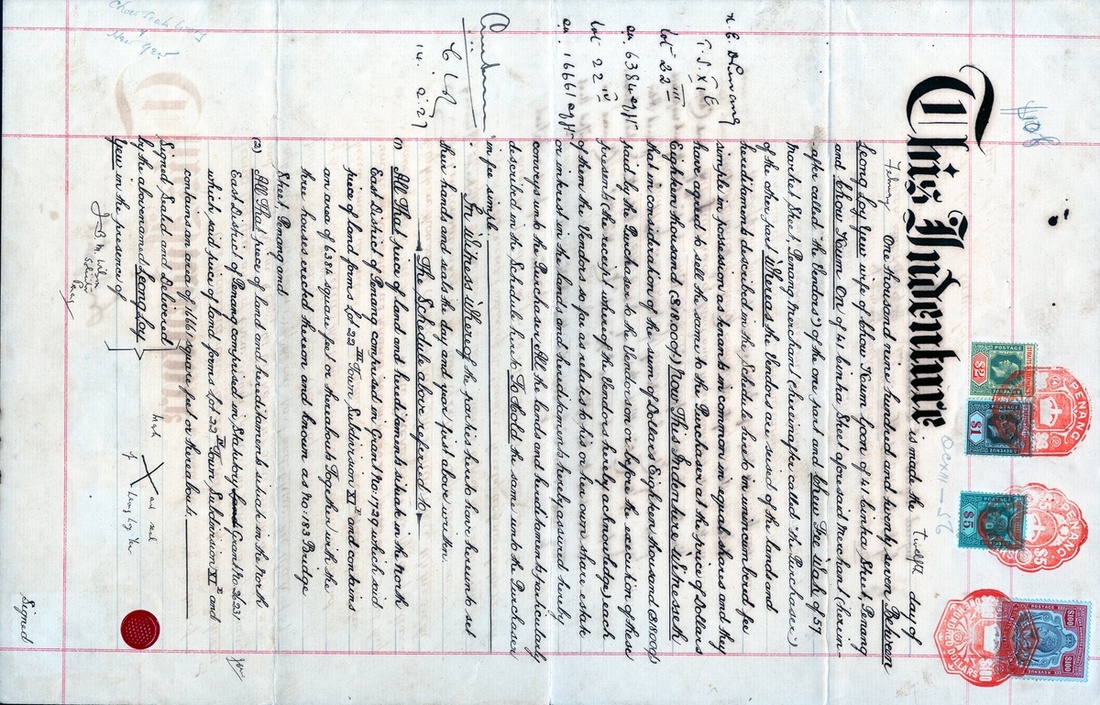 This Indenture is made the twelfth day of
February One thousand nine hundred and twenty seven Between
Leong Loy Yew wife of Chow Keum Yoon of 41 Bintha Street Penang
and Chow Keum On of 41 Bintha Street aforesaid Merchant (herein-
after called the Vendors) of the one part and Chew Tee Wah of 57
Market Street Penang Merchant (hereinafter called the Purchaser)
of the other part Whereas the Vendors are seised of the lands and
hereditaments described in the Schedule hereto in unincumbered fee
simple in possession as tenants in common in equal shares and they
have agreed to sell the same to the Purchaser at the price of Dollars
Eighteen thousand ($18000/) Now This Indenture Witnesseth
that in consideration of the sum of Dollars Eighteen thousand ($18000/)
paid by the Purchaser to the Vendors on or before the execution of these
presents (the receipt whereof the Vendors hereby acknowledge) each
of them the Vendors so far as relates to his or her own share estate
or interest in the lands and hereditaments hereby assured hereby
conveys unto the Purchaser All the lands and hereditaments particularly
described in the Schedule hereto To Hold the same unto the Purchaser
in fee simple.
In Witness Whereof the parties hereto have hereunto set
their hands and seals the day and year first above written.
The Schedule above referred to
(1) All That piece of land and hereditaments situate in the North
East District of Penang comprised in Grant No: 1729 which said
piece of land forms Lot 22 III Town Subdivision XI E and contains
an area of 6384 square feet or thereabouts Together with the
three houses erected thereon and known as No: 183 Bridge
Street, Penang and
(2) All That piece of land and hereditaments situate in the North
East District of Penang comprised in Statutory Grant No: 2231
which said piece of land forms Lot 22 IV Town Subdivision XI E and
contains an area of 1,6661 square feet or thereabouts.
Signed Sealed and Delivered
by the abovenamed Leong Loy
Yew in the presence of
mark
X
and seal
of Leong Loy Yew
Solicitor
Penang
Signed
T.S. XI E
lot 22 III
av. 6384 sq ft
lot 22 IV
av. 16661 sq ft
14.2.27
PENANG
$2
POSTAGE
$1
PENANG
$5
$5
POSTAGE
$100
$100
HUNDRED DOLLARS
$100